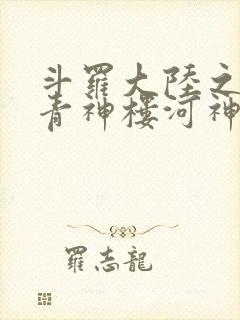 斗羅大陸之
青神樓河神
羅志龍